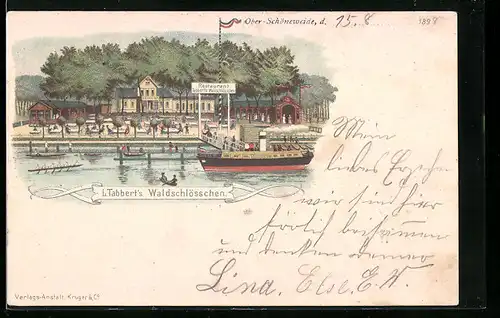 Ober-Schöneweide, d. 15. 8 1898
Restaurant
L. Tabbert's Waldschlösschen.
Mein
liebes
wir sind hier
frölich beisammen
und denken deiner
Lina, Else, E.W.
Verlags-Anstalt Krüger & Co